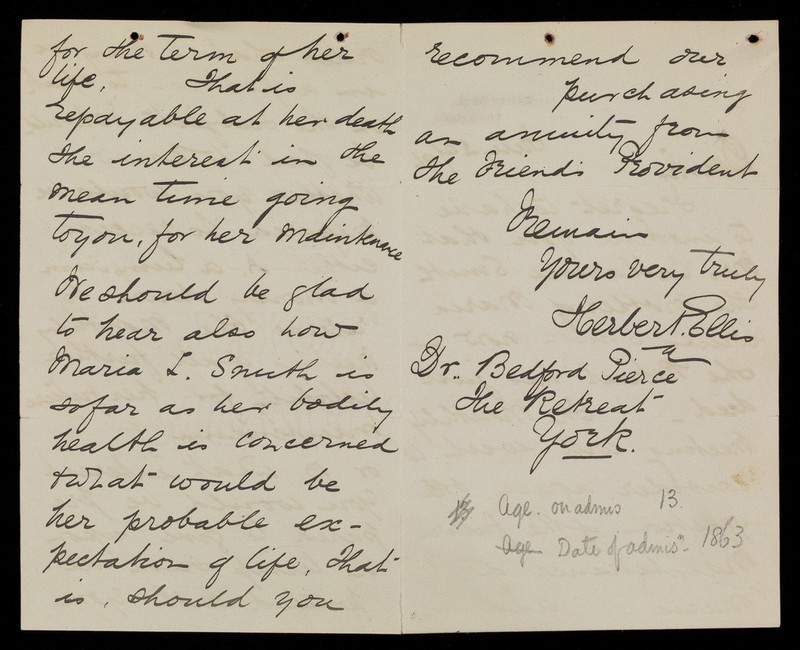 for the term of her
life. That is
repayable at her death
the interest in the
mean time going
to you, for her maintenance
We should be glad
to hear also how
Maria L. Smith is
so far as her bodily
health is concerned
& what would be
her probable ex-
pectation of life, That
is, should you
recommend our
purchasing
an annuity from
the Friends Provident
Remain
Yours very truly
Herbert P. Ellis
Dr. Bedford Pierce
The Retreat
York.
Age. on admis 13
Age Date of admisn 1863